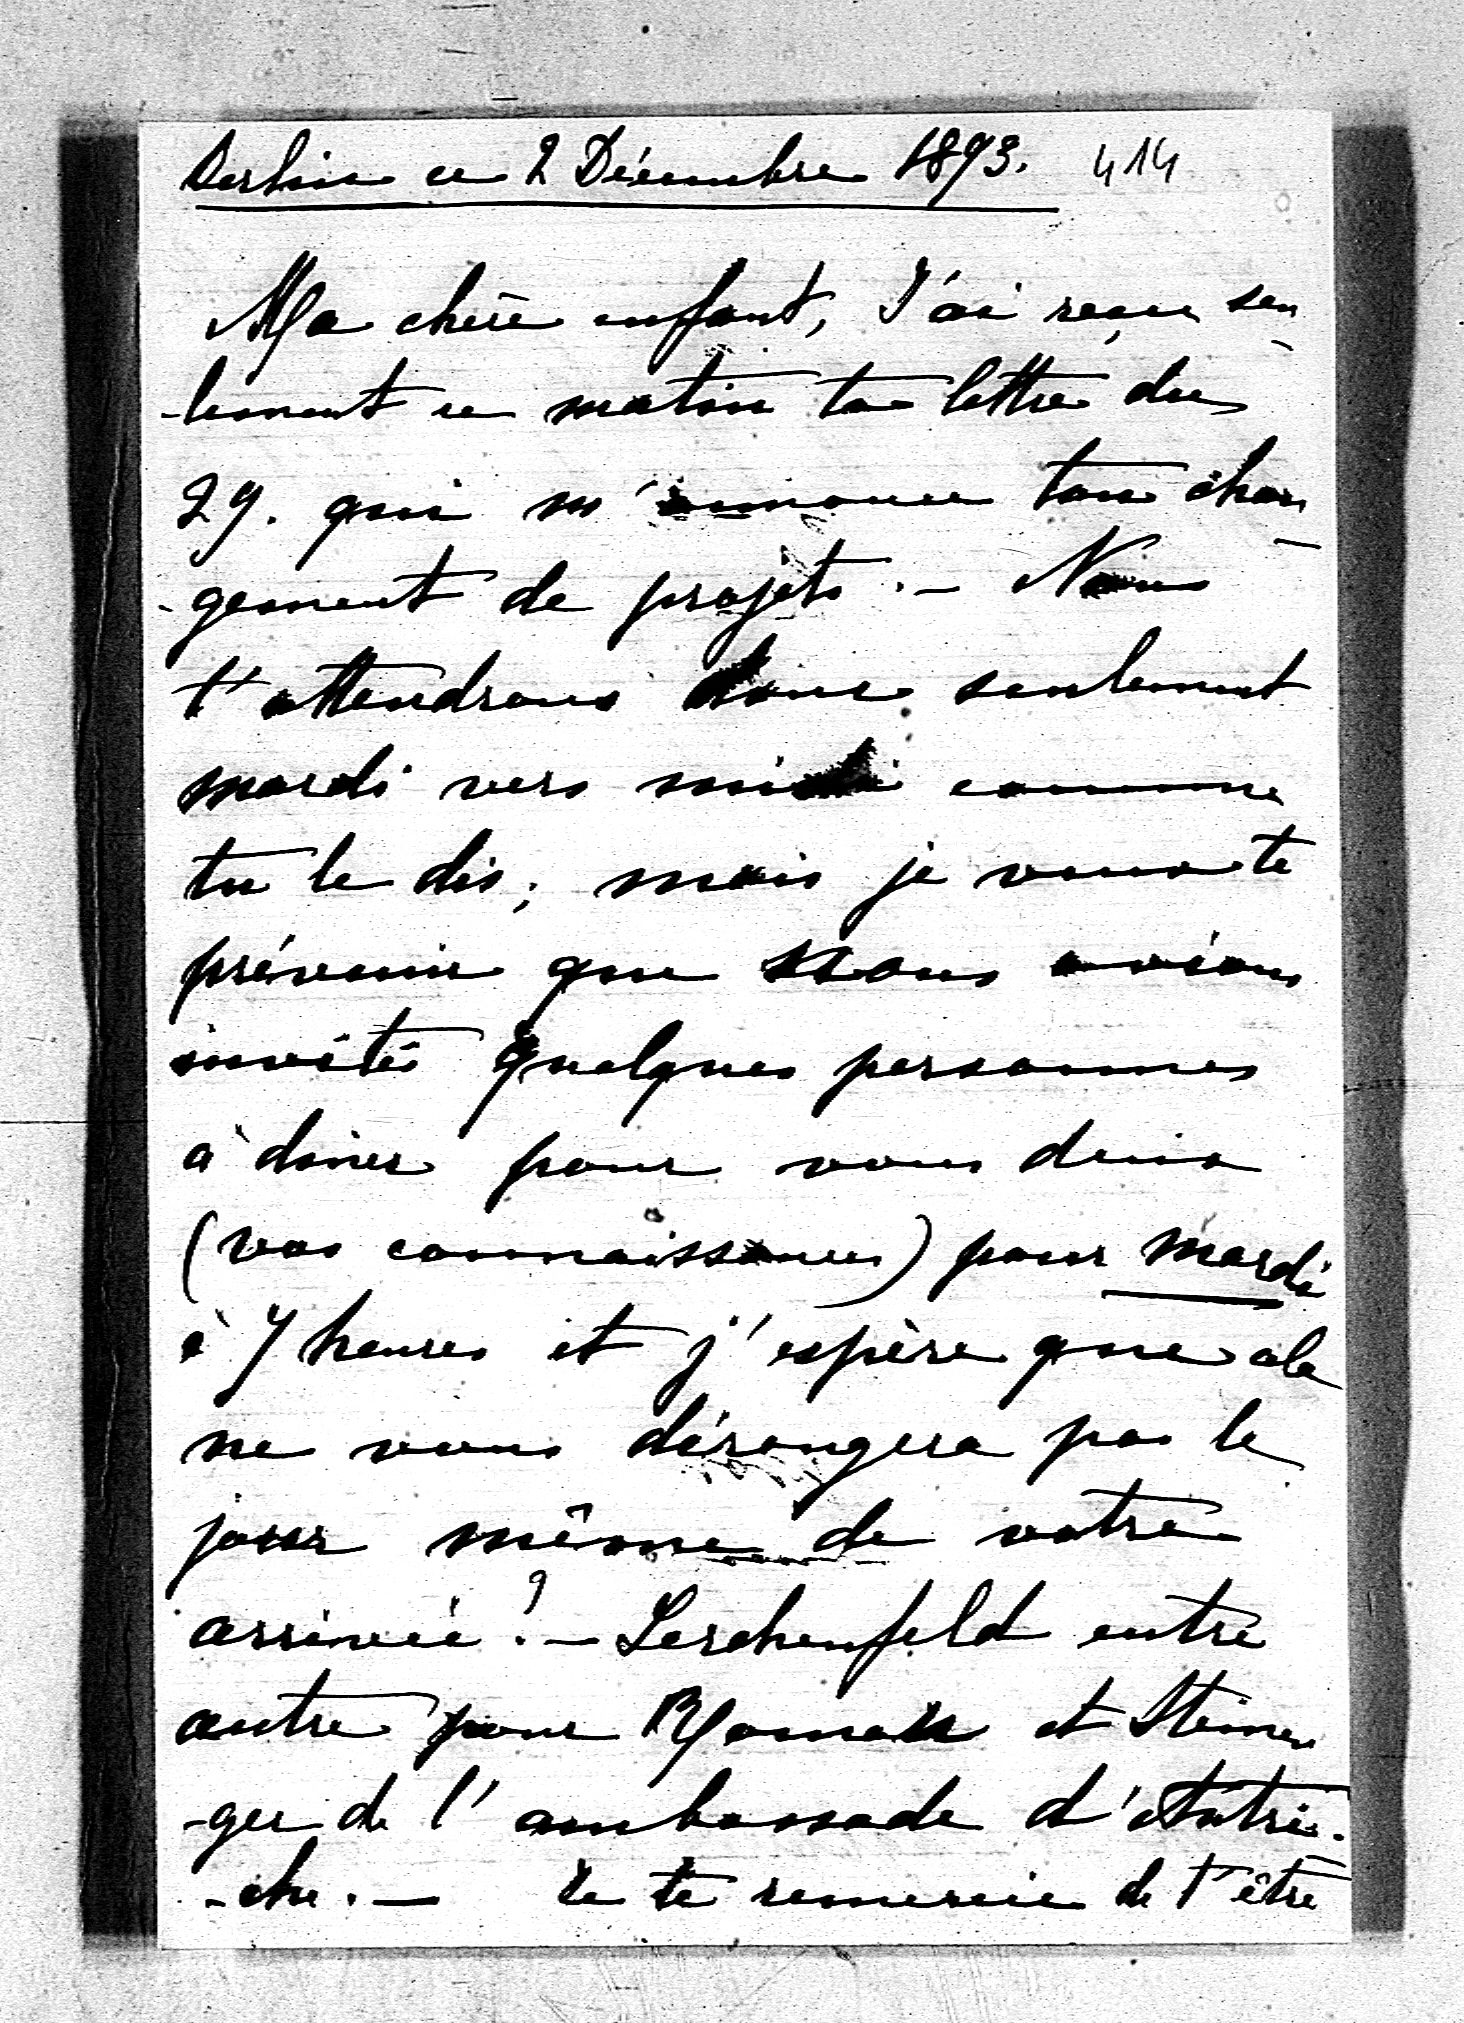 Berlin ce 2 Décembre 1893. 414
Ma chère enfant, J'ai reçu seu
-lement ce matin ta lettre du
29. qui m'annonce ton chan
-gement de projets. — Nous
t'attendrons donc seulement
mardi vers midi comme
tu le dis; mais je veux te
prévenir que nous avions
invité quelques personnes
à diner pour vous deux
(vos connaissances) pour mardi
à 7 heures et j'espère que cela
ne vous dérangera pas le
jour même de votre
arrivée? — Lerchenfeld entre
autre pour Roman et Steinin
-ger de l'ambassade d'Autri-
-che. — Je te remercie de t'être